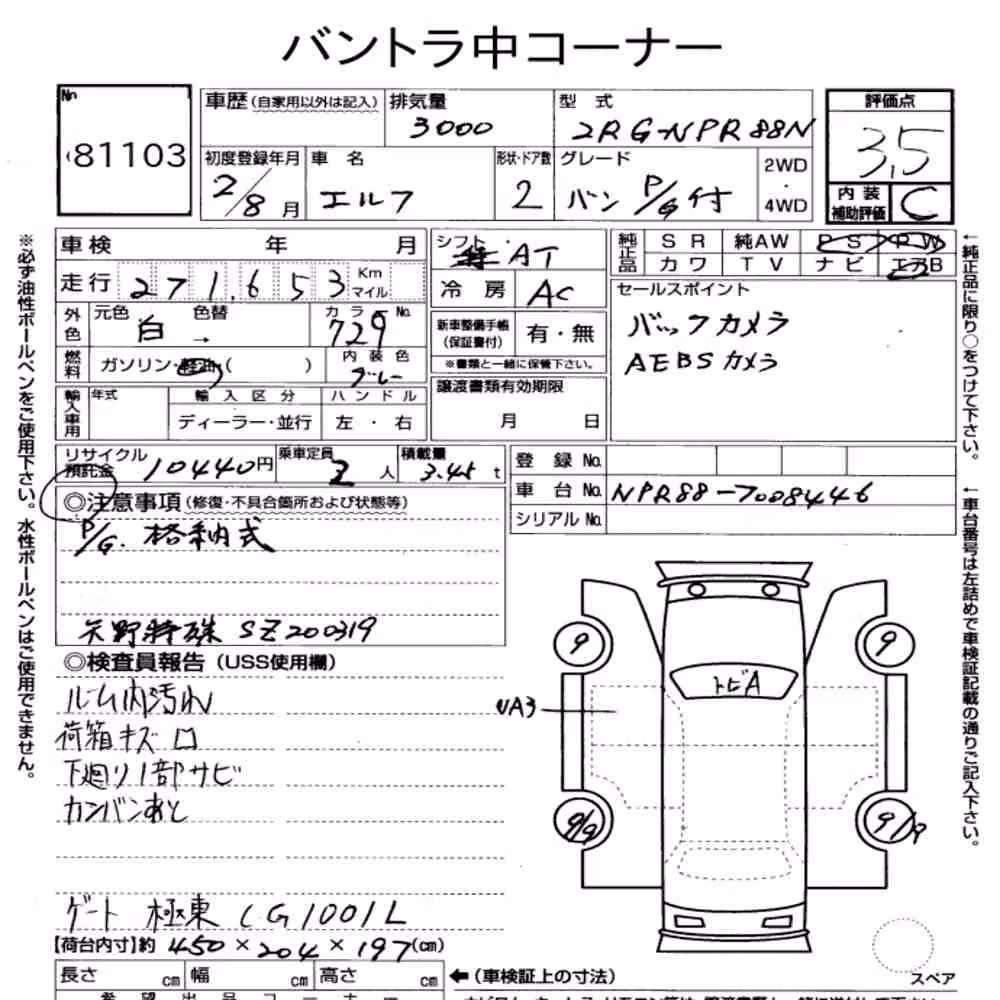 バントラ中コーナー
No
81103
車歴(自家用以外は記入)
排気量
3000
型式
2RG-NPR88N
評価点
3.5
内装
補助評価
C
初度登録年月
2/8月
車名
エルフ
形状・ドア数
2
グレード
バン P/G付
2WD
・
4WD
車検 年 月
走行 271,653 Km
マイル
外色
元色 白
色替 →
カラーNo.
729
燃料
ガソリン・軽油( )
内装色
グレー
輸入車用
年式
輸入区分
ディーラー・並行
ハンドル
左・右
シフト
AT
冷房 AC
新車整備手帳
(保証書付)
有・無
※書類と一緒に保管下さい。
譲渡書類有効期限
月 日
純正品
SR 純AW PS PW
カワ TV ナビ エアB
セールスポイント
バックカメラ
AEBSカメラ
リサイクル
預託金
10440円
乗車定員
2人
積載量
3.45t
登録No.
車台No. NPR88-7008446
シリアルNo.
◎注意事項(修復・不具合箇所および状態等)
P/G. 格納式
矢野特殊 SZ200319
◎検査員報告(USS使用欄)
ルーム内汚れ
荷箱キズ ロ
下廻り1部サビ
カンバンあと
ゲート 極東 CG1001L
【荷台内寸】約 450×204×197(cm)
長さ cm 幅 cm 高さ cm
←(車検証上の寸法)
希望出品コーナー
※必ず油性ボールペンをご使用下さい。水性ボールペンはご使用できません。
←純正品に限り○をつけて下さい。
←車台番号は左詰めで車検証記載の通りご記入下さい。
9
9
トビA
UA3
9/9
9/9
スペア